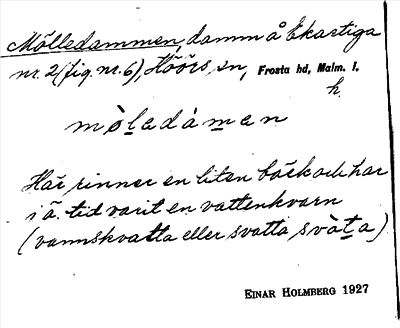 Mölledammen, damm å Ekastiga
nr. 2 (fig. nr. 6), Höörs sn, Frosta hd, Malm. l.
h.
mòḷedàmen
Här rinner en liten bäck och har
i ä. tid varit en vattenkvarn
(vannskvatta eller svatta, svàta)
EINAR HOLMBERG 1927